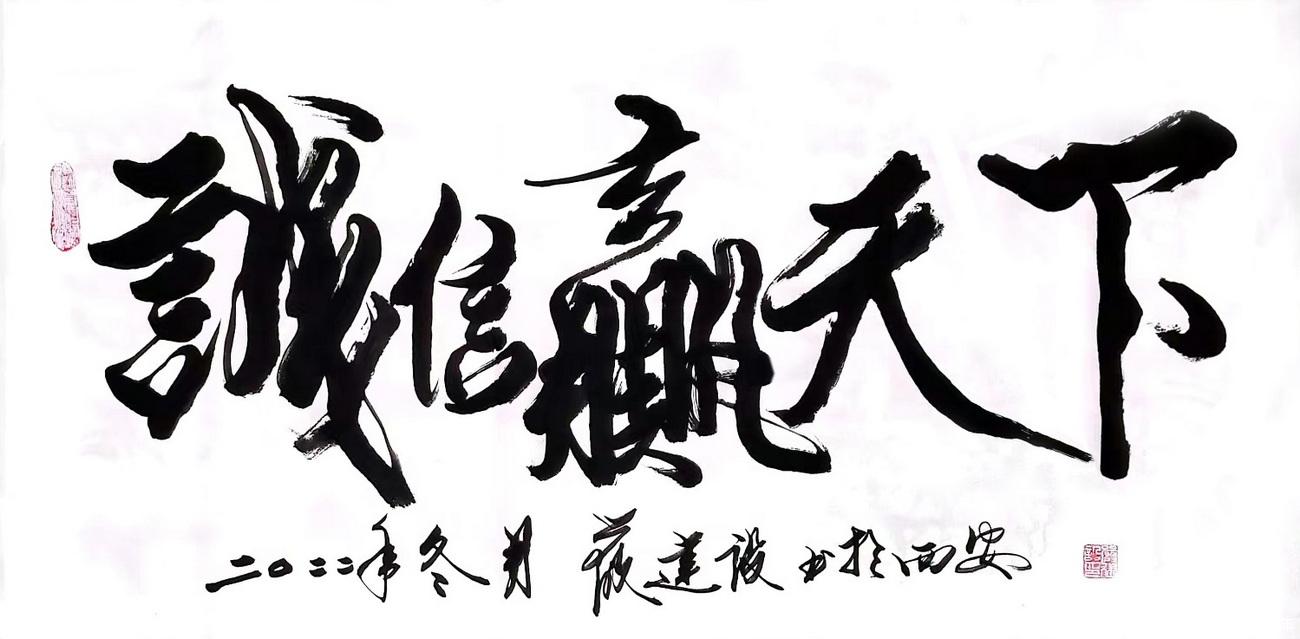 誠信贏天下
二〇二二年冬月 薇建设书於西安